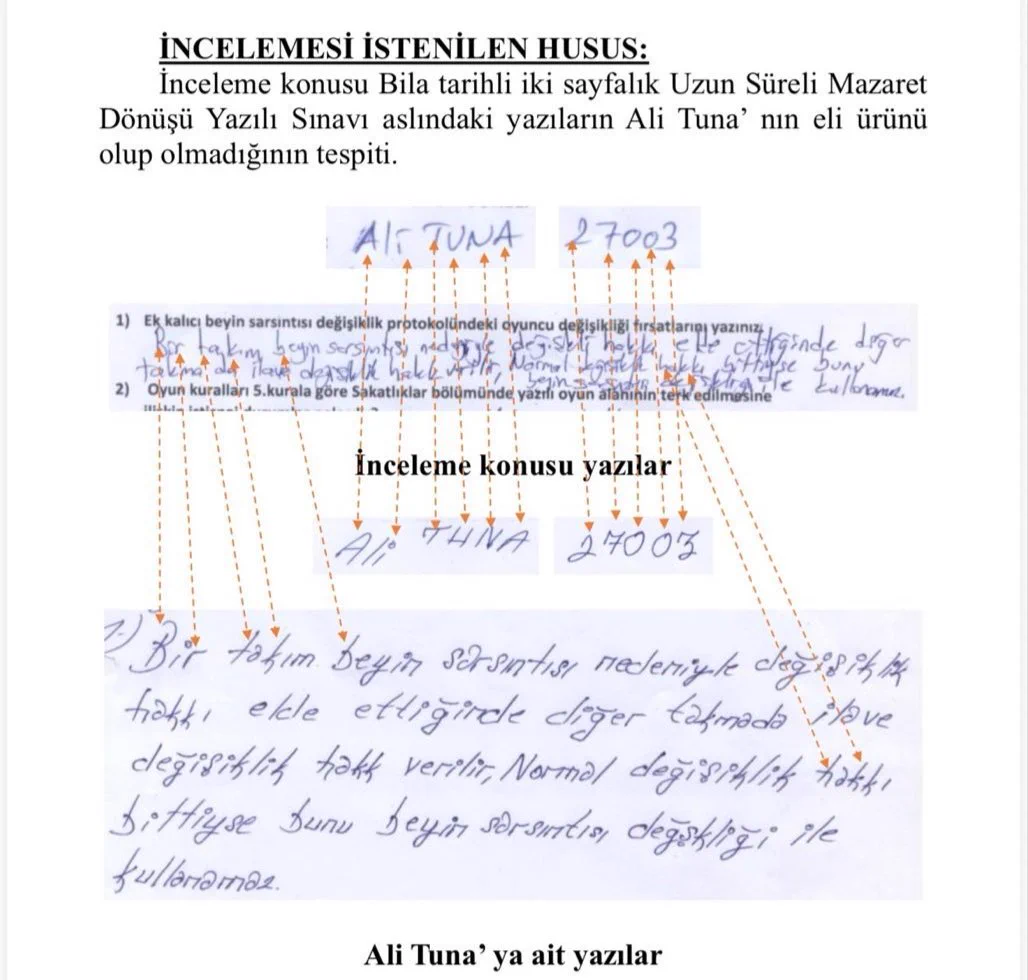 İNCELEMESİ İSTENİLEN HUSUS:
İnceleme konusu Bila tarihli iki sayfalık Uzun Süreli Mazaret
Dönüşü Yazılı Sınavı aslındaki yazıların Ali Tuna’ nın eli ürünü
olup olmadığının tespiti.
Ali TUNA 27003
1) Ek kalıcı beyin sarsıntısı değişiklik protokolündeki oyuncu değişikliği fırsatlarını yazınız
Bir takım beyin sarsıntısı nedeniyle değişikli hakkı elde ettiğinde diğer
takıma da ilave değişiklik hakkı verilir, Normal değişiklik hakkı bittiyse bunu
beyin sarsıntısı ile kullanamaz.
2) Oyun kuralları 5.kurala göre Sakatlıklar bölümünde yazılı oyun alanının terk edilmesine
İnceleme konusu yazılar
Ali TUNA 27003
1-) Bir takım beyin sarsıntısı nedeniyle değişiklik
hakkı elde ettiğinde diğer takmada ilave
değişiklik hakk verilir, Normal değişiklik hakkı
bittiyse bunu beyin sarsıntısı değşkliği ile
kullanamaz.
Ali Tuna’ ya ait yazılar